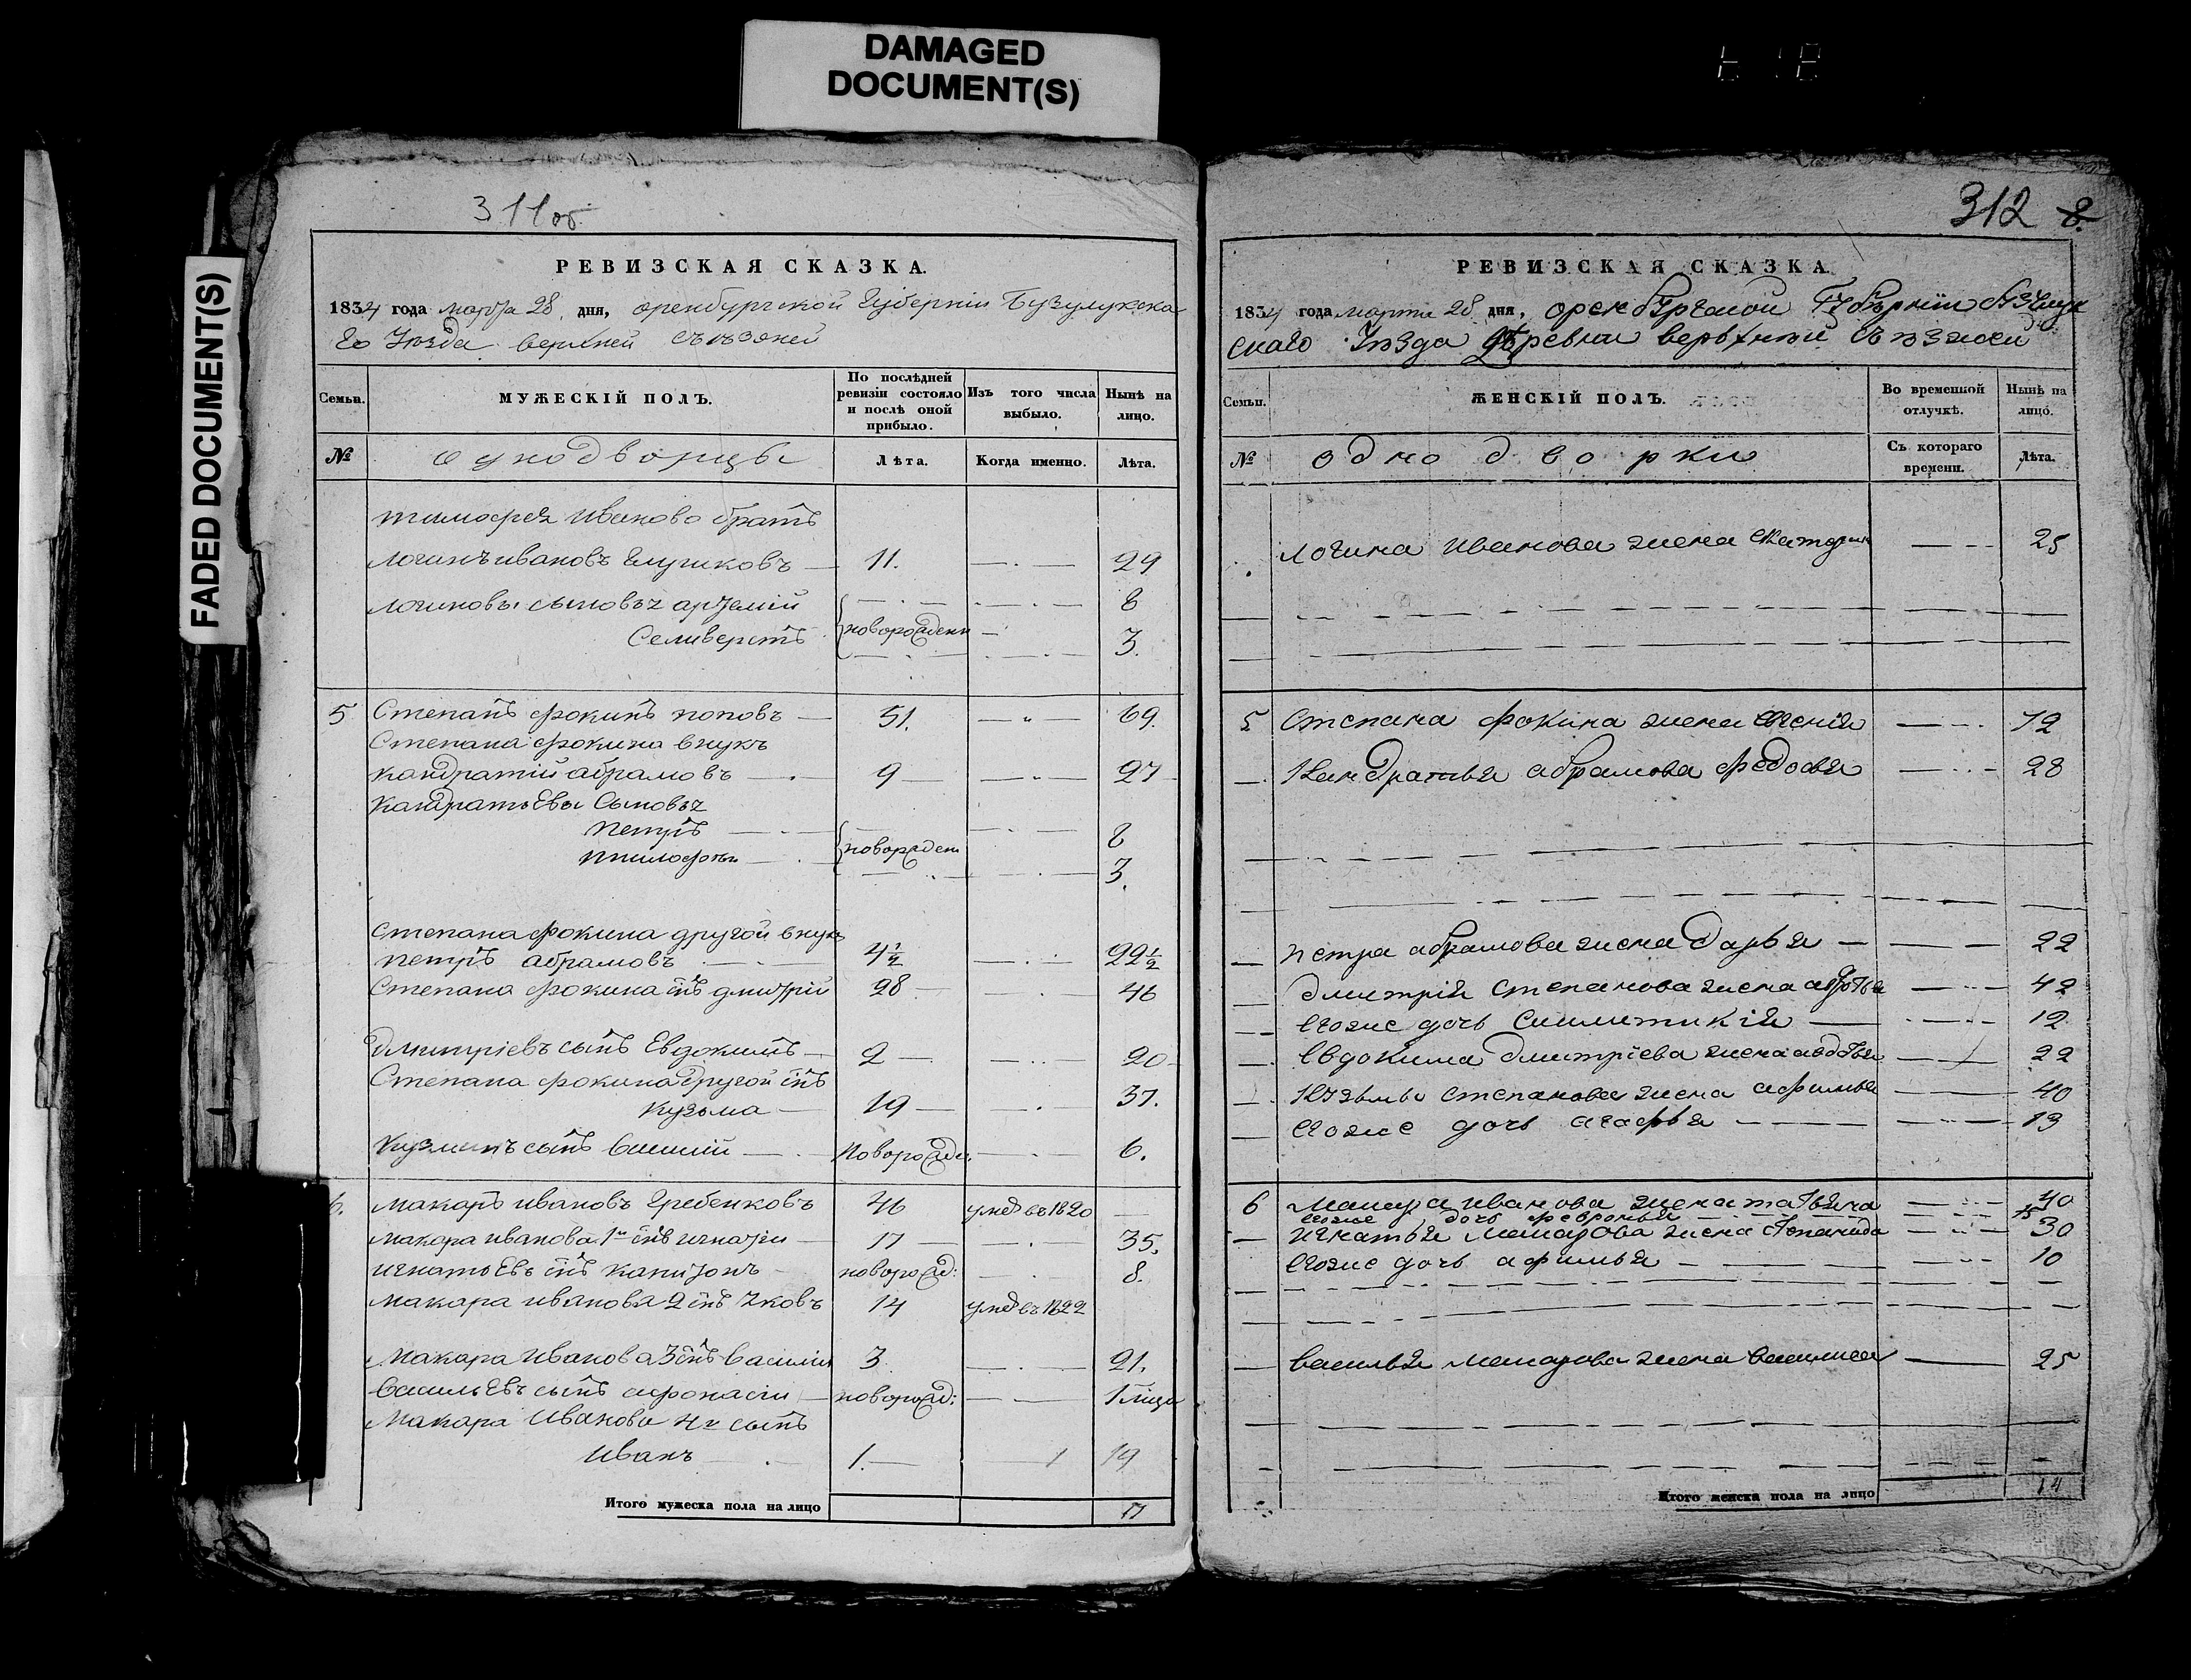 DAMAGED
DOCUMENT(S)
FADED DOCUMENT(S)
311 об.
РЕВИЗСКАЯ СКАЗКА.
1834 года марта 28 дня, оренбургской Губернiи Бузулукска
го Уѣзда верхней съѣзжей
Семьи.
МУЖЕСКIЙ ПОЛЪ.
По послѣдней ревизiи состояло и послѣ оной прибыло.
Изъ того числа выбыло.
Нынѣ на лицо.
№
однодворцы
Лѣта.
Когда именно.
Лѣта.
тимофея иванова братъ
логинъ ивановъ 11. 29
логиновы сыновья артемiй 8
Селиверстъ новорожден 3.
5 Степанъ фокинъ поповъ 51. 69.
Степана фокина внукъ
кандратiй абрамовъ 9 27
кандратьевы сыновья
петръ 8
тимофей новорожден 3.
степана фокина другой внукъ
петръ абрамовъ 4½ 22½
Степана фокина снъ дмитрiй 28 46
дмитрiевъ сынъ Евдокимъ 2 20
Степана фокина другой снъ
кузьма 19 37.
кузминъ сынъ василiй новорожд. 6.
6. макаръ ивановъ гребенковъ 46 умре въ 1820
макара иванова 1й снъ игнатiи 17 35.
игнатьевъ снъ капитонъ новорожд: 8.
макара иванова 2 снъ яковъ 14 умре въ 1822
макара иванова 3 снъ василiи 3. 21.
васильевъ сынъ афонасiи новорожд:
макара иванова 4й сынъ
иванъ 1. 19
Итого мужеска пола на лицо 17
312 8.
РЕВИЗСКАЯ СКАЗКА
1834 года марта 28 дня, оренбургской Губернiи бузулук
скаго Уѣзда деревни верхней съѣзжей
Семьи.
ЖЕНСКIЙ ПОЛЪ.
Во временной отлучкѣ.
Нынѣ на лицо.
№
однодворки
Съ котораго времени.
Лѣта.
логина иванова жена катерин 25
5 степана фокина жена 72
кандратья абрамова федосья 28
петра абрамова жена дарья 22
дмитрiя степанова жена 42
Егоже дочь 12
Евдокима дмитрiева жена авдотья 22
кузьмы степанова жена афимья 40
Егоже дочь агафья 13
6 макара иванова жена татьяна 40
Егоже дочь февронья 15
игнатья макарова жена степанида 30
Егоже дочь афимья 10
василья макарова жена василиса 25
Итого женска пола на лицо 14